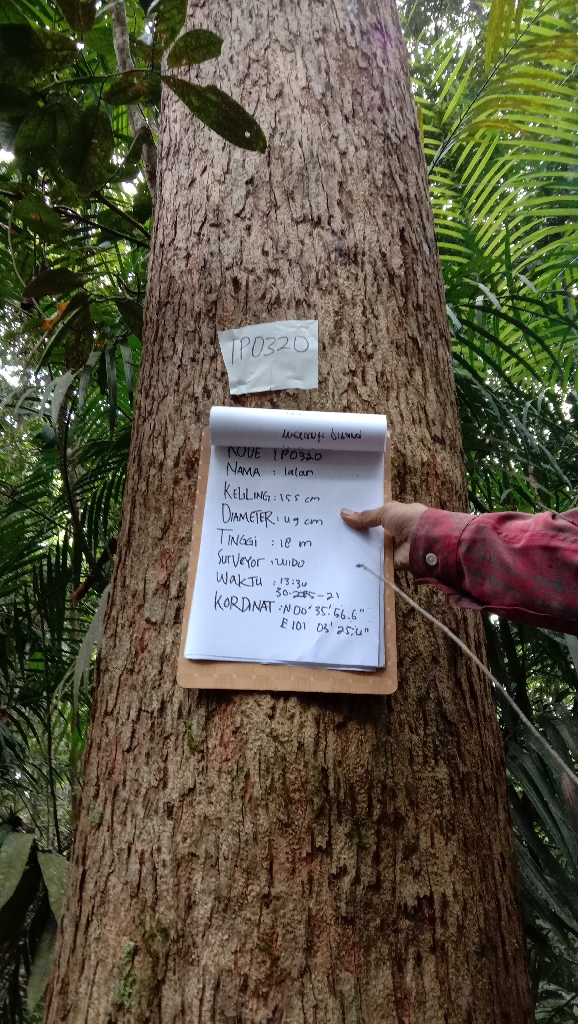 IP0320
KODE : IP0320
NAMA : lalan
KELILING : 155 cm
DIAMETER : 49 cm
TINGGI : 18 m
SURVEYOR : WIDO
WAKTU : 13:34
KORDINAT : N00° 35' 56.6"
E 101 03' 25,4"